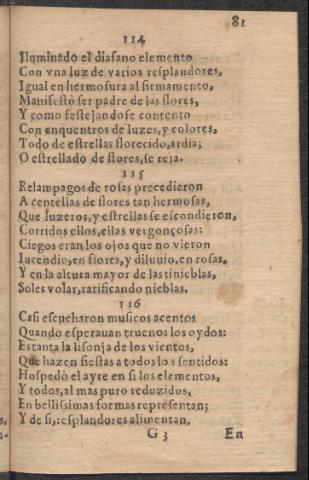 81
114
Iluminado el diafano elemento
Con vna luz de varios resplandores,
Igual en hermosura al firmamento,
Manifestò ser padre de las flores,
Y como festejandose contento
Con enquentros de luzes, y colores,
Todo de estrellas florecido, ardia;
O estrellado de flores, se reia.
115
Relampagos de rosas precedieron
A centellas de flores tan hermosas,
Que luzeros, y estrellas se escondieron,
Corridos ellos, ellas vergonçosas:
Ciegos eran los ojos que no vieron
Incendio, en flores, y diluuio, en rosas,
Y en la altura mayor de las tinieblas,
Soles volar, rarificando nieblas.
116
Casi escucharon musicos acentos
Quando esperauan truenos los oydos:
Estanta la lisonja de los vientos,
Que hazen fiestas a todos los sentidos:
Hospedò el ayre en si los elementos,
Y todos, al mas puro reduzidos,
En bellissimas formas representan;
Y de si, resplandores alimentan,
G 3 En